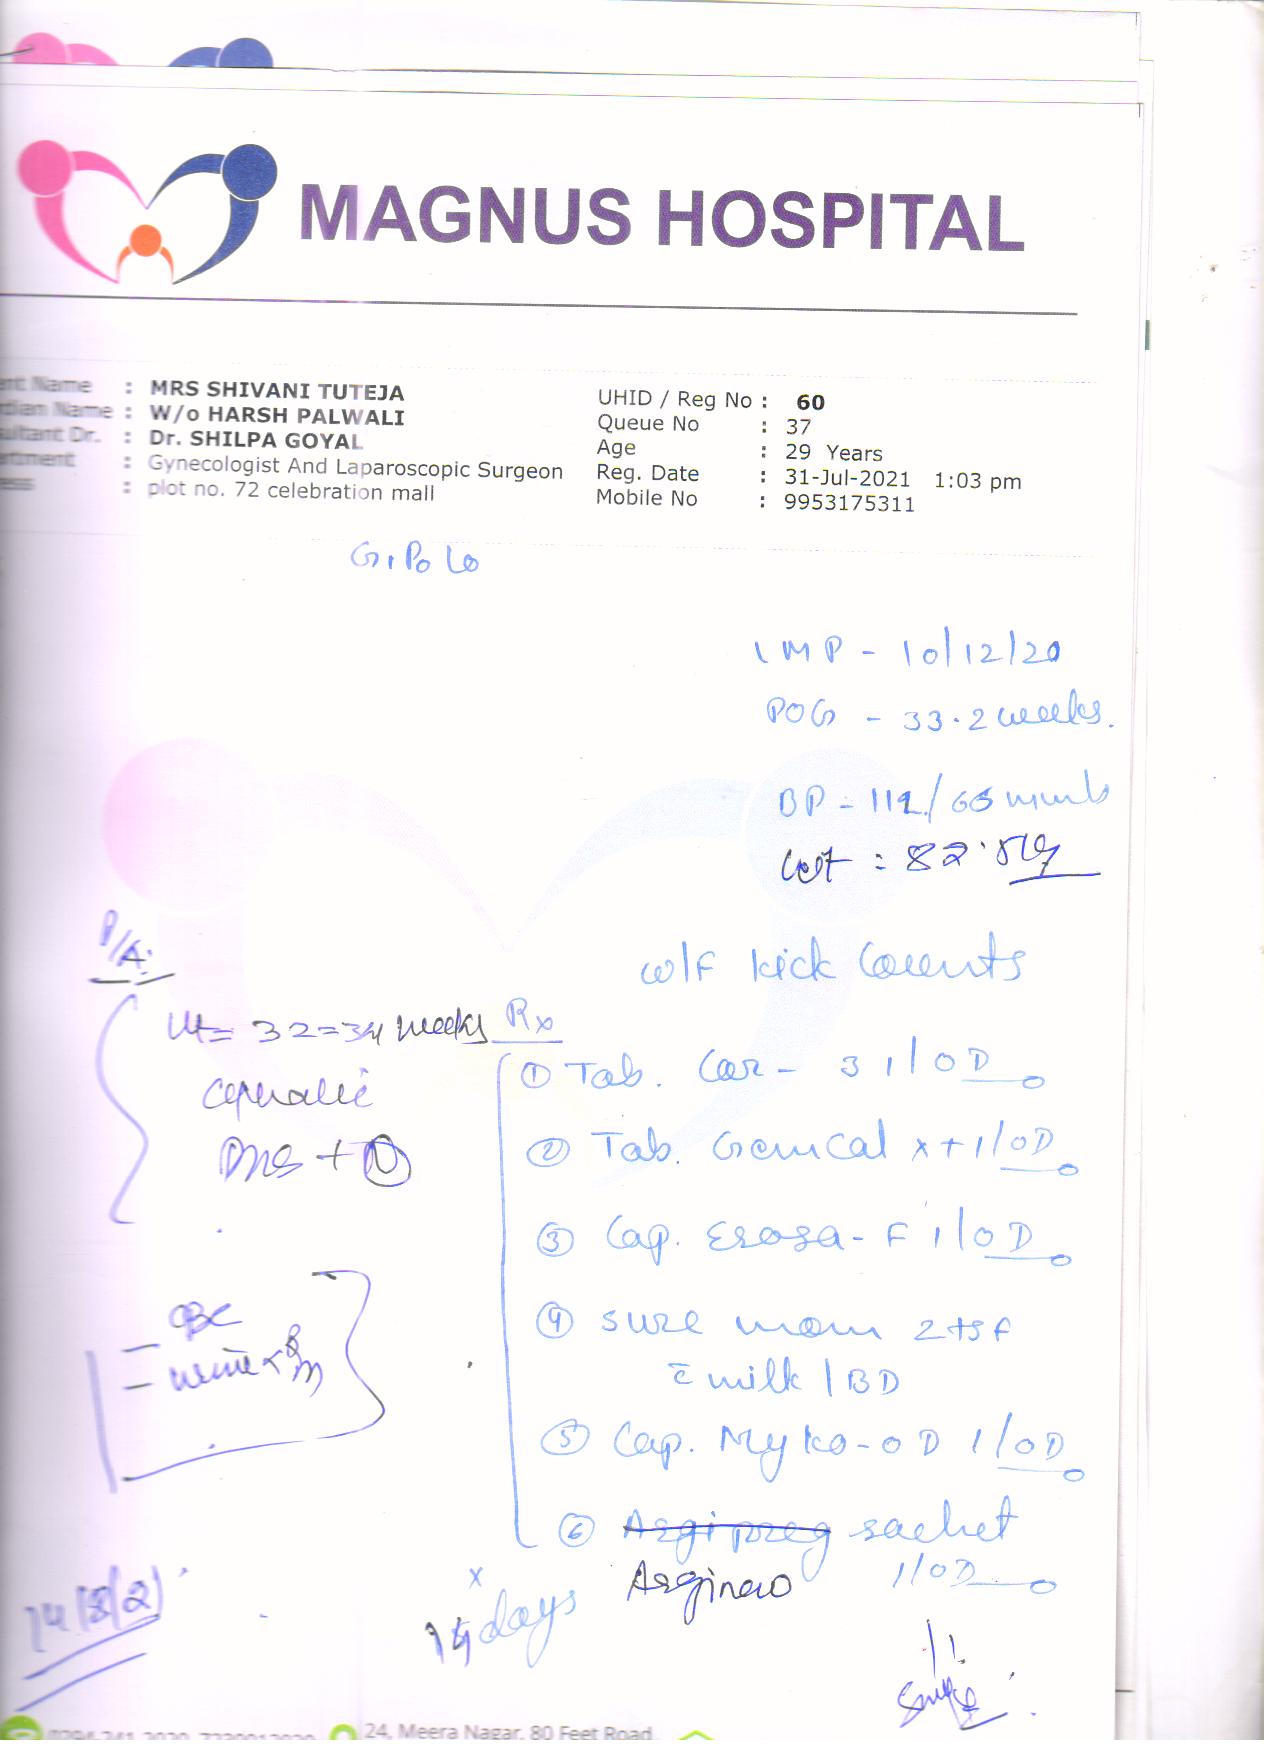 MAGNUS HOSPITAL
ent Name : MRS SHIVANI TUTEJA
rdian Name : W/o HARSH PALWALI
sultant Dr. : Dr. SHILPA GOYAL
artment : Gynecologist And Laparoscopic Surgeon
ress : plot no. 72 celebration mall
UHID / Reg No : 60
Queue No : 37
Age : 29 Years
Reg. Date : 31-Jul-2021 1:03 pm
Mobile No : 9953175311
G1P0L0
LMP - 10/12/20
POG - 33.2 weeks.
BP - 112/66 mmhg
Wt : 82.5kg
P/A:
Ut = 32-34 weeks
Cephalic
FHS + N
w/f kick Counts
Rx
① Tab. Car - 3 1/OD
② Tab. Gemcal x+ 1/OD
③ Cap. Esosa-F 1/OD
④ sure mom 2tsf
c̄ milk 1 BD
⑤ Cap. Myko-OD 1/OD
⑥ Argipreg sachet
Arginew 1/OD
CBC
urine R/m
x
15 days
14/8/21
24, Meera Nagar, 80 Feet Road